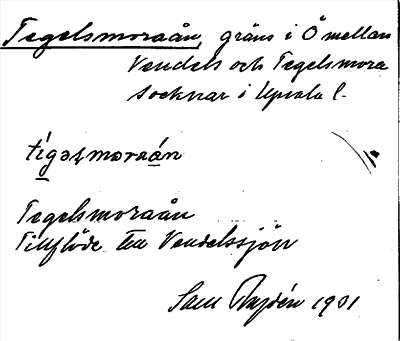 Tegelsmoraån, gräns i Ö mellan
Vendels och Tegelsmora
socknar i Upsala l.
tigəsmoraån
Tegelsmoraån
Tillflöde till Vendelssjön
Sam Rydén 1901